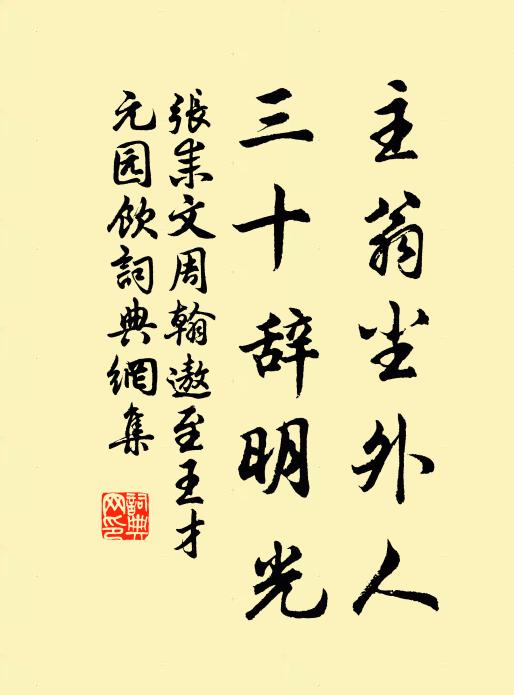 主翁尘外人
三十辞明光
張耒文周翰遨至王才
元园飲詞典網集
詞典網印